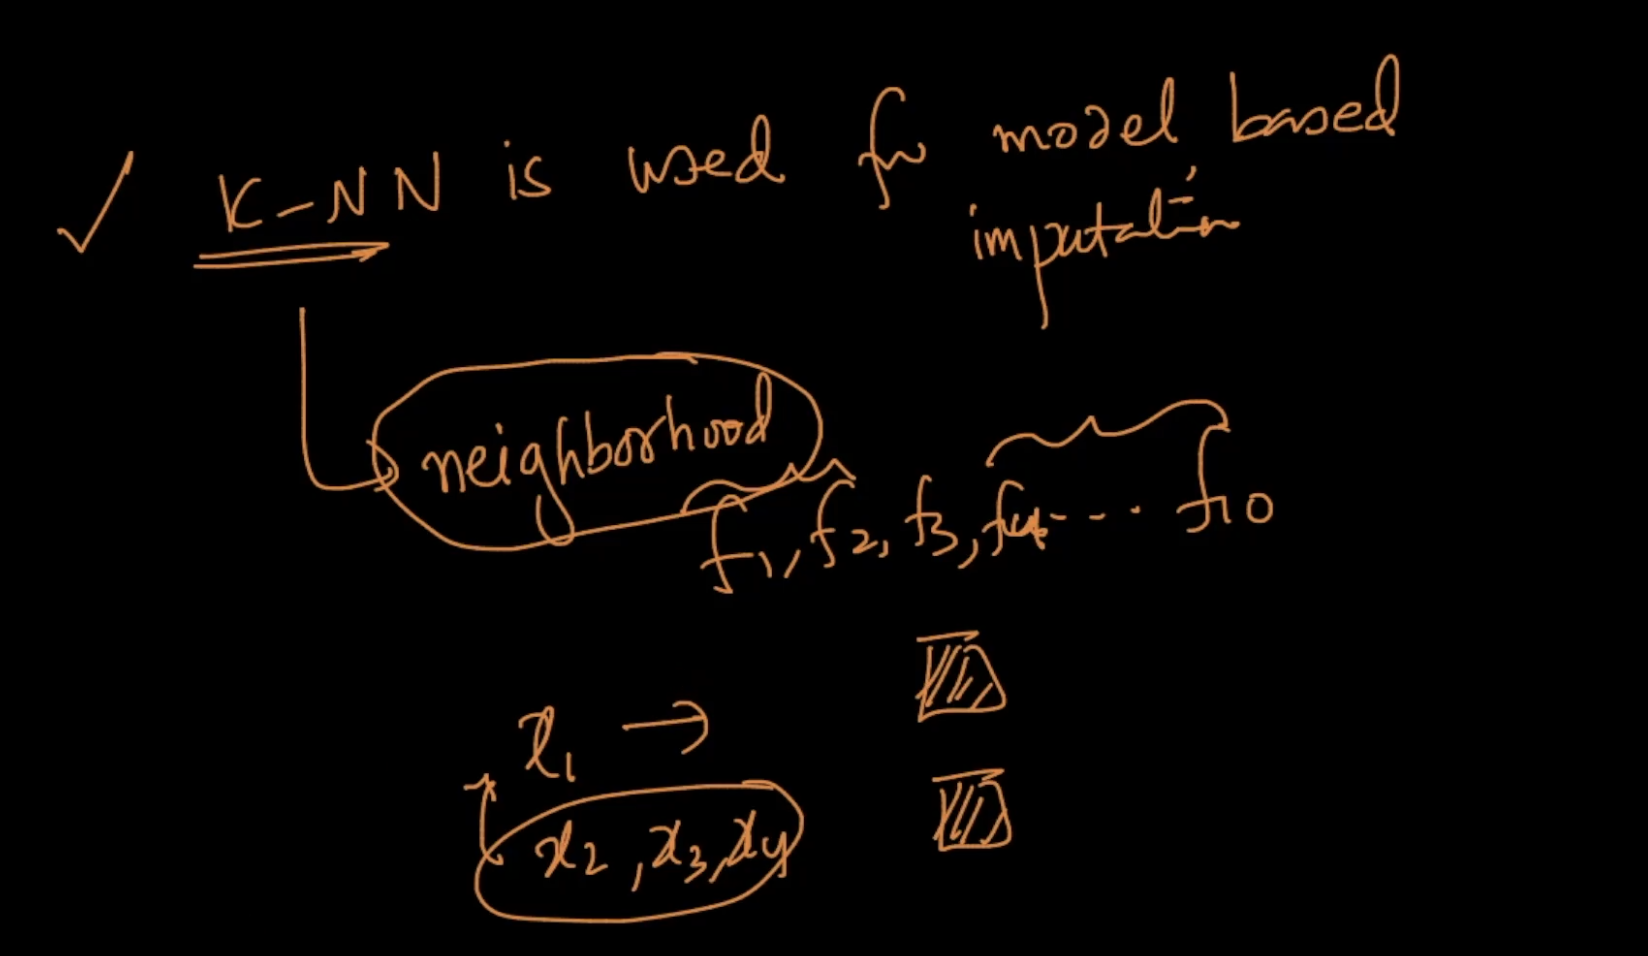 K-NN is used for model based
imputation
neighborhood
f1, f2, f3, f4 - - - . f10
x1 →
x2, x3, x4